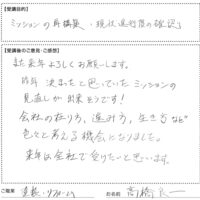 【受講目的】
ミッションの再構築、現状進行度の確認
【受講後のご意見・ご感想】
また来年よろしくお願いします。
昨年 決まったと思っていたミッションの
見直しが出来そうです!
会社の在り方、進み方、生き方など
色々と考える機会になりました。
来年は会社で受けたいと思います。
ご職業
お名前 高橋良一